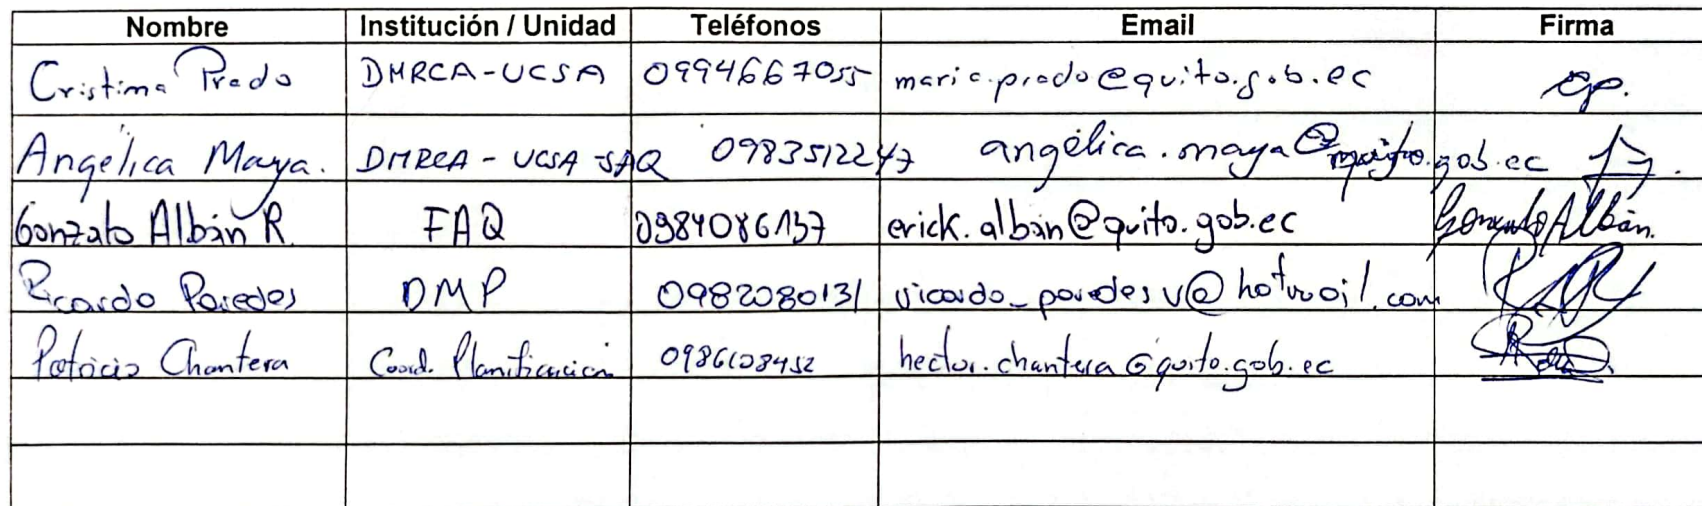 Nombre Institución / Unidad Teléfonos Email Firma
Cristina Prado DMRCA-UCSA 0994667055 maric.prado@quito.gob.ec cp.
Angélica Maya. DMRCA - UCSA -SAQ 0983512247 angélica.maya@quito.gob.ec
Gonzalo Albán R. FAQ 0984086137 erick.alban@quito.gob.ec Gonzalo Albán.
Ricardo Paredes DMP 0982080131 ricardo_paredesv@hotmail.com
Patricio Chantera Coord. Planificación hector.chantera@quito.gob.ec